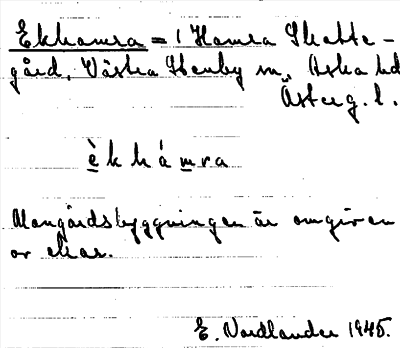 Ekhamra = 1 Hamra Skatte-
gård, Västra Stenby sn, Aska hd
Österg. l.
èkhámra
Mangårdsbyggningen är omgiven
av ekar.
E. Nordlander 1945.